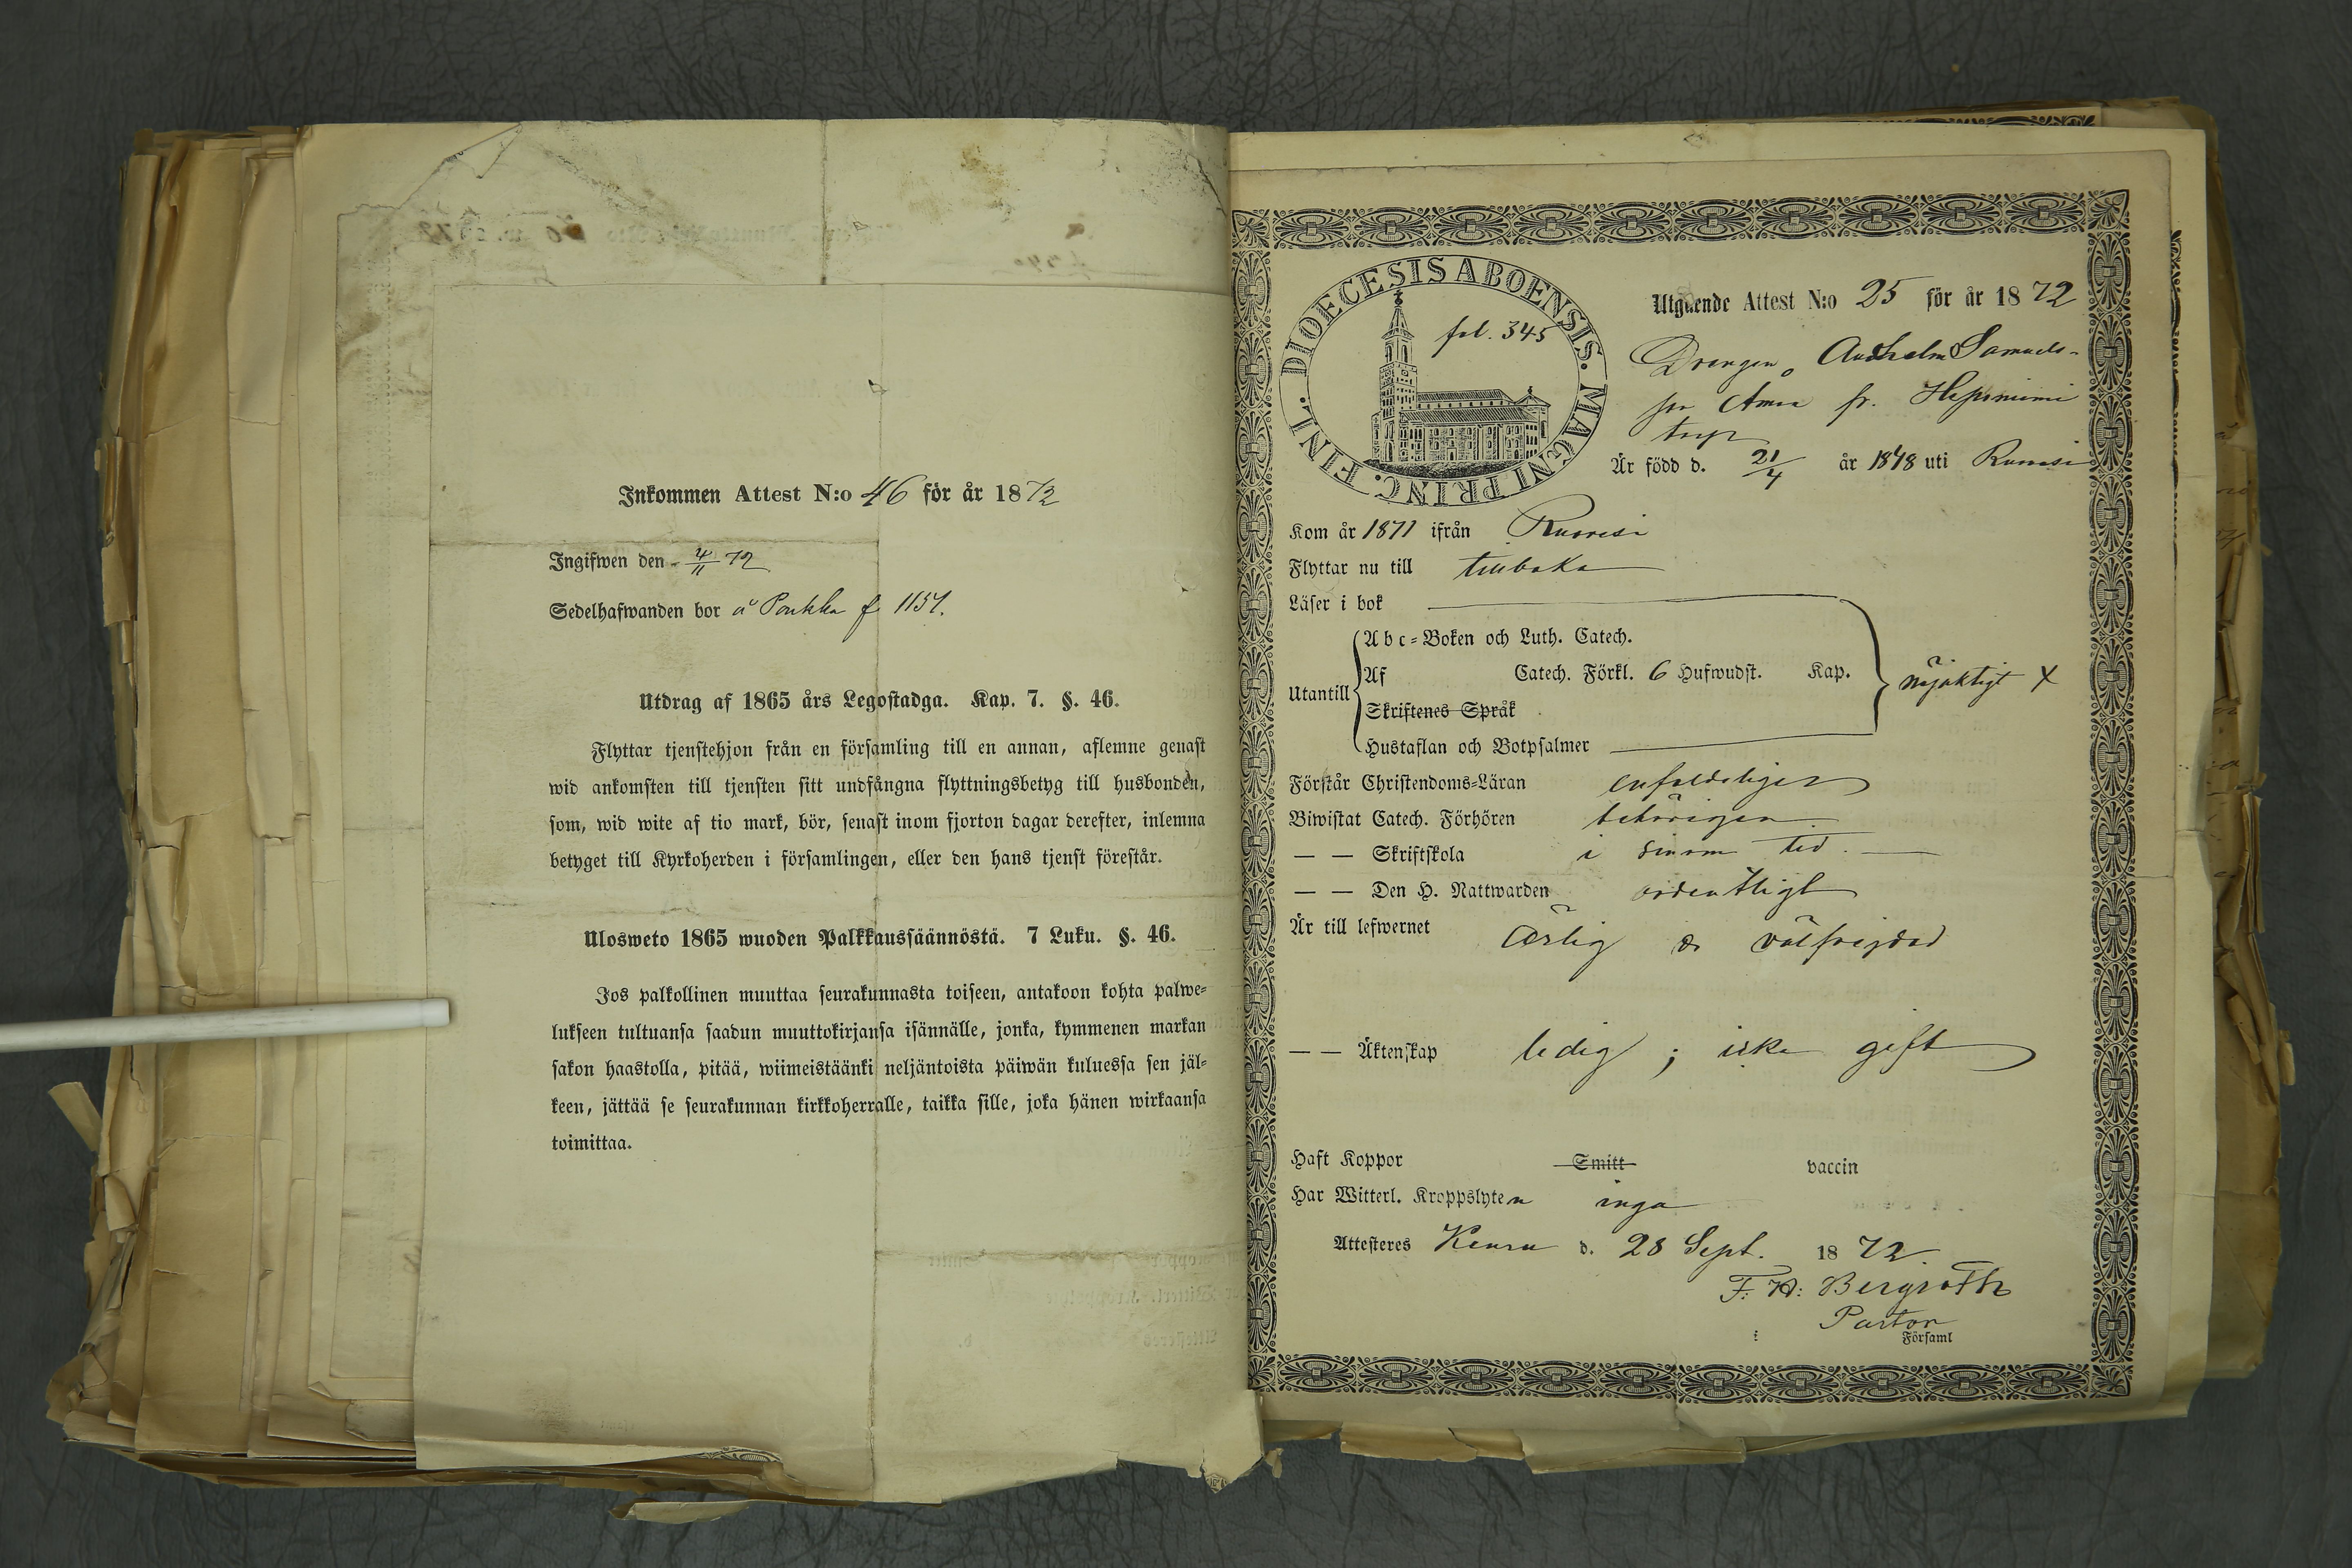 Inkommen Attest N:o 46 för år 1872
Ingifwen den 4/11 72
Sedelhafwanden bor å Poukka f. 1157.
Utdrag af 1865 års Legostadga. Kap. 7. §. 46.
Flyttar tjenstehjon från en församling till en annan, aflemne genast
wid ankomsten till tjensten sitt undfångna flyttningsbetyg till husbonden,
som, wid wite af tio mark, bör, senast inom fjorton dagar derefter, inlemna
betyget till Kyrkoherden i församlingen, eller den hans tjenst förestår.
Ulosweto 1865 wuoden Palkkaussäännöstä. 7 Luku. §. 46.
Jos palkollinen muuttaa seurakunnasta toiseen, antakoon kohta palwe-
lukseen tultuansa saadun muuttokirjansa isännälle, jonka, kymmenen markan
sakon haastolla, pitää, wiimeistäänki neljäntoista päiwän kuluessa sen jäl-
keen, jättää se seurakunnan kirkkoherralle, taikka sille, joka hänen wirkaansa
toimittaa.
DIOECESIS ABOENSIS. MAGNI PRINC. FINL.
fol. 345
Utgående Attest N:o 25 för år 1872
Drengen Samuels-
son fr.
torp
Är född d. 21/4 år 1848 uti Ruovesi
Kom år 1871 ifrån Ruovesi
Flyttar nu till tillbaka
Läser i bok
Utantill
Abc-Boken och Luth. Catech.
Af Catech. Förkl. 6 Hufwudst. Kap.
Skriftenes Språk
Hustaflan och Botpsalmer
nöjaktigt X
Förstår Christendoms-Läran enfaldeligen
Biwistat Catech. Förhören behörigen
— — Skriftskola i sinom tid.
— — Den H. Nattwarden ordentligt
Är till lefwernet Ärlig o. välfrejdad
— — Äktenskap ledig; icke gift
Haft Koppor Smitt vaccin
Har Witterl. Kroppslyten inga
Attesteres Keuru d. 28 Sept. 1872
F. W: Bergroth
Pastor
i Församl